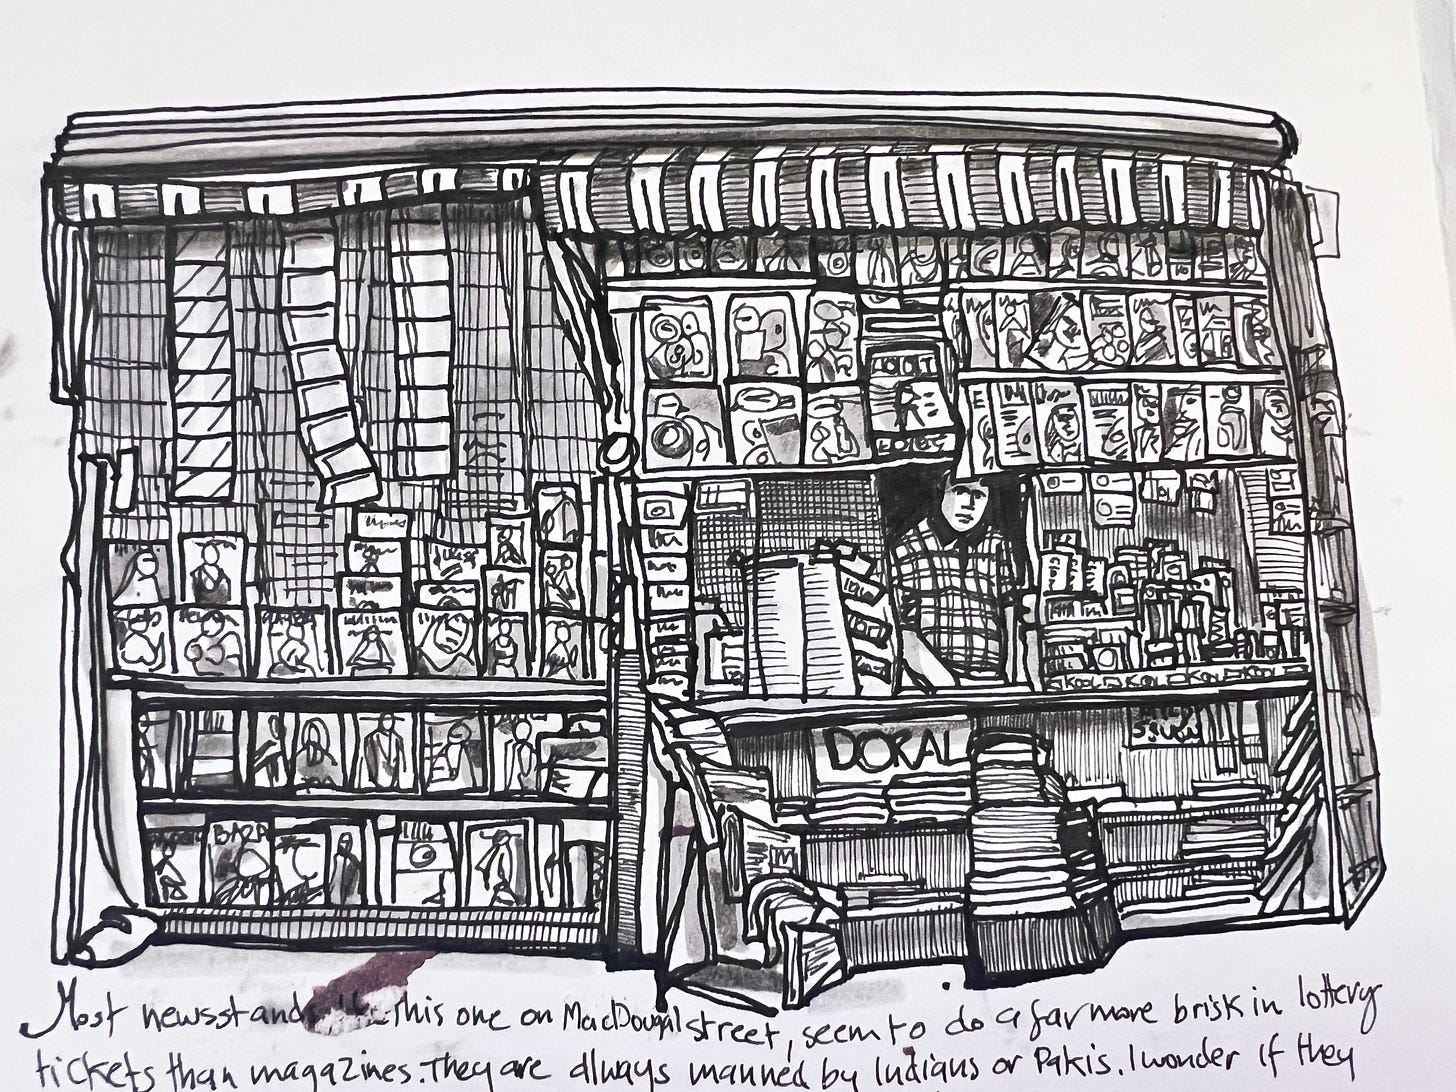 BAZA
DORAL
KOOL KOOL KOOL KOOL
Most newsstands this one on MacDougal street, seem to do a far more brisk in lottery
tickets than magazines. They are always manned by Indians or Pakis. I wonder if they